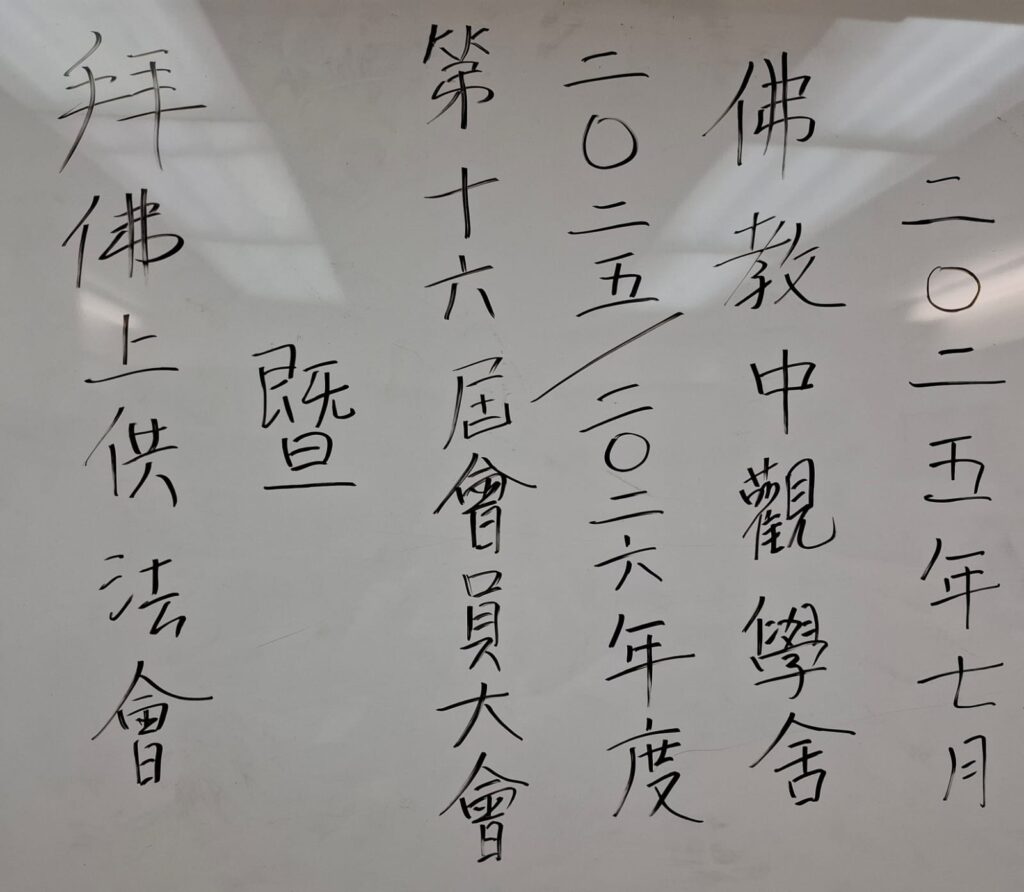 二〇二五年七月
佛教中觀學舍
二〇二五/二〇二六年度
第十六屆會員大會
暨
拜佛上供法會